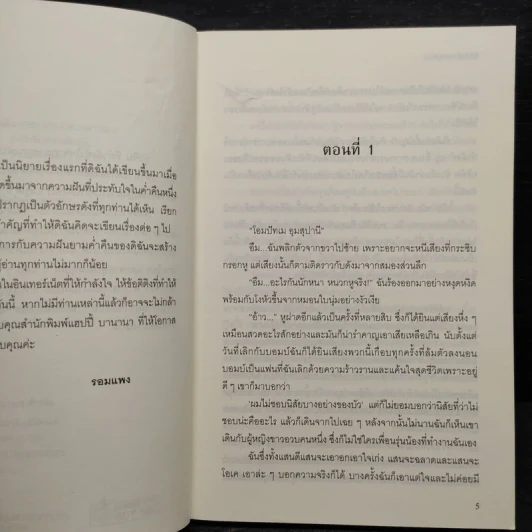 เป็นนิยายเรื่องแรกที่ดิฉันได้เขียนขึ้นมาเมื่อ
ดขึ้นมาจากความฝันที่ประทับใจในค่ำคืนหนึ่ง
ปรากฏเป็นตัวอักษรดังที่ทุกท่านได้เห็น เรียก
สำคัญที่ทำให้ดิฉันคิดจะเขียนเรื่องต่อ ๆ ไป
การกับความฝันยามค่ำคืนของดิฉันจะสร้าง
ผู้อ่านทุกท่านไม่มากก็น้อย
ในอินเทอร์เน็ตที่ให้กำลังใจ ให้ข้อติติงที่ทำให้
วันนี้ หากไม่มีท่านเหล่านี้แล้วก็อาจจะไม่กล้า
บคุณสำนักพิมพ์แฮปปี้ บานานา ที่ให้โอกาส
บคุณค่ะ
รอมแพง
ตอนที่ 1
"โอมปัทเม อุมสุปานี"
อืม...ฉันพลิกตัวจากขวาไปซ้าย เพราะอยากจะหนีเสียงที่กระซิบ
กรอกหู แต่เสียงนั้นก็ตามติดราวกับดังมาจากสมองส่วนลึก
"อืม...อะไรกันนักหนา หนวกหูจริง!" ฉันร้องออกมาอย่างหงุดหงิด
พร้อมกับโงหัวขึ้นจากหมอนใบนุ่มอย่างงัวเงีย
"อ้าว..." หูฝาดอีกแล้วเป็นครั้งที่หลายสิบ ซึ่งก็ได้ยินแต่เสียงหึ่ง ๆ
เหมือนสวดอะไรสักอย่างและมันก็น่ารำคาญเอาเสียเหลือเกิน นับตั้งแต่
วันที่เลิกกับบอมบ์ฉันก็ได้ยินเสียงพวกนี้เกือบทุกครั้งที่ล้มตัวลงนอน
บอมบ์เป็นแฟนที่ฉันเลิกด้วยความร้าวรานและแค้นใจสุดชีวิตเพราะอยู่
ดี ๆ เขาก็มาบอกว่า
'ผมไม่ชอบนิสัยบางอย่างของบัว' แต่ก็ไม่ยอมบอกว่านิสัยที่ว่าไม่
ชอบน่ะคืออะไร แล้วก็เดินจากไปเฉย ๆ หลังจากนั้นไม่นานฉันก็เห็นเขา
เดินกับผู้หญิงขาวอวบคนหนึ่ง ซึ่งก็ไม่ใช่ใครเพื่อนรุ่นน้องที่ทำงานฉันเอง
ฉันซึ่งทั้งแสนดีแสนจะเอาอกเอาใจเก่ง แสนจะฉลาดและแสนจะ
โอเค เอาล่ะ ๆ บอกความจริงก็ได้ บางครั้งฉันก็เอาแต่ใจและไม่ค่อยมี
5